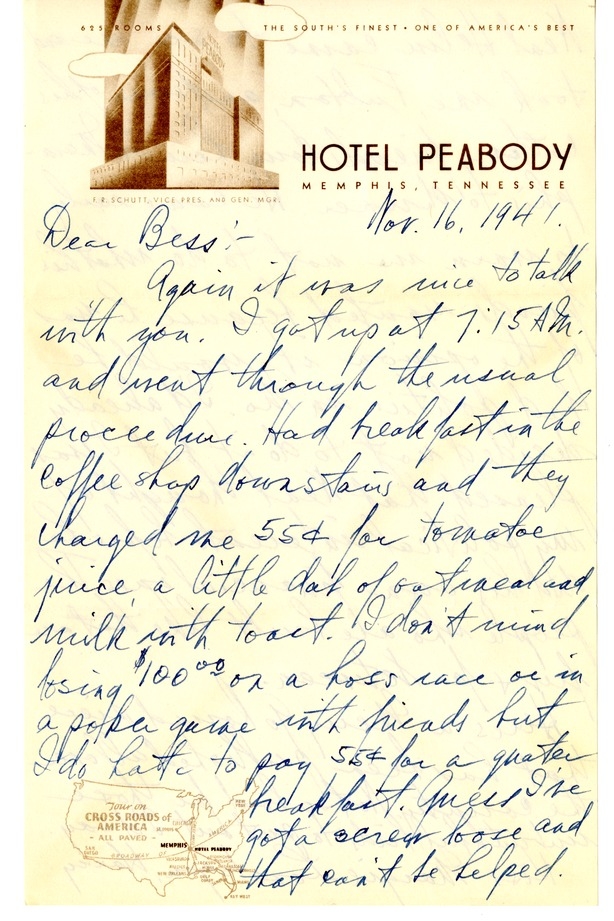 625 ROOMS
THE SOUTH'S FINEST • ONE OF AMERICA'S BEST
HOTEL PEABODY
MEMPHIS, TENNESSEE
F. R. SCHUTT, VICE PRES. AND GEN. MGR.
Nov. 16, 1941.
Dear Bess:-
Again it was nice to talk
with you. I got up at 7:15 A.M.
and went through the usual
proceedure. Had breakfast in the
coffee shop downstairs and they
charged me 55¢ for tomatoe
juice, a little dab of oatmeal and
milk with toast. I don't mind
losing $100.00 on a hoss race or in
a poker game with friends but
I do hate to pay 55¢ for a quater
breakfast. Guess I've
got a screw loose and
that can't be helped.
Tour on
CROSS ROADS of
AMERICA
- ALL PAVED -
BROADWAY OF AMERICA
MEMPHIS
HOTEL PEABODY
NEW YORK
CHICAGO
SAN DIEGO
NEW ORLEANS
KEY WEST